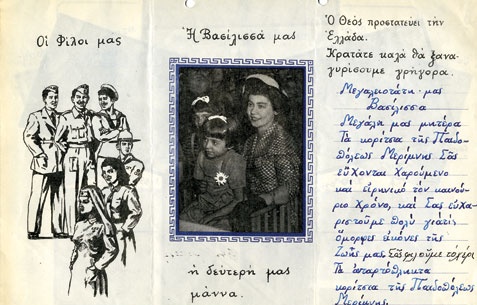 Οἱ Φίλοι μας
Ἡ Βασίλισσά μας
ἡ δεύτερή μας
μάννα.
Ὁ Θεός προστατεύει τήν
Ἑλλάδα.
Κρατᾶτε καλά θά ξανα-
γυρίσουμε γρήγορα.
Μεγαλειοτάτη μας
Βασίλισσα
Μεγάλη μας μητέρα
Τά κορίτσα τῆς Παιδο-
πόλεως Μερίμνης Σᾶς
εὔχονται Χαρούμενο
καί εἰρηνικό τόν καινού-
ριο Χρόνο, καί Σᾶς εὐχα-
ριστοῦμε πολύ γιά τίς
ὄμορφες εἰκόνες τῆς
Ζωῆς μας. Σᾶς φιλοῦμε τό χέρι
Τά
κορίτσα τῆς Παιδοπόλεως
Μερίμνης.